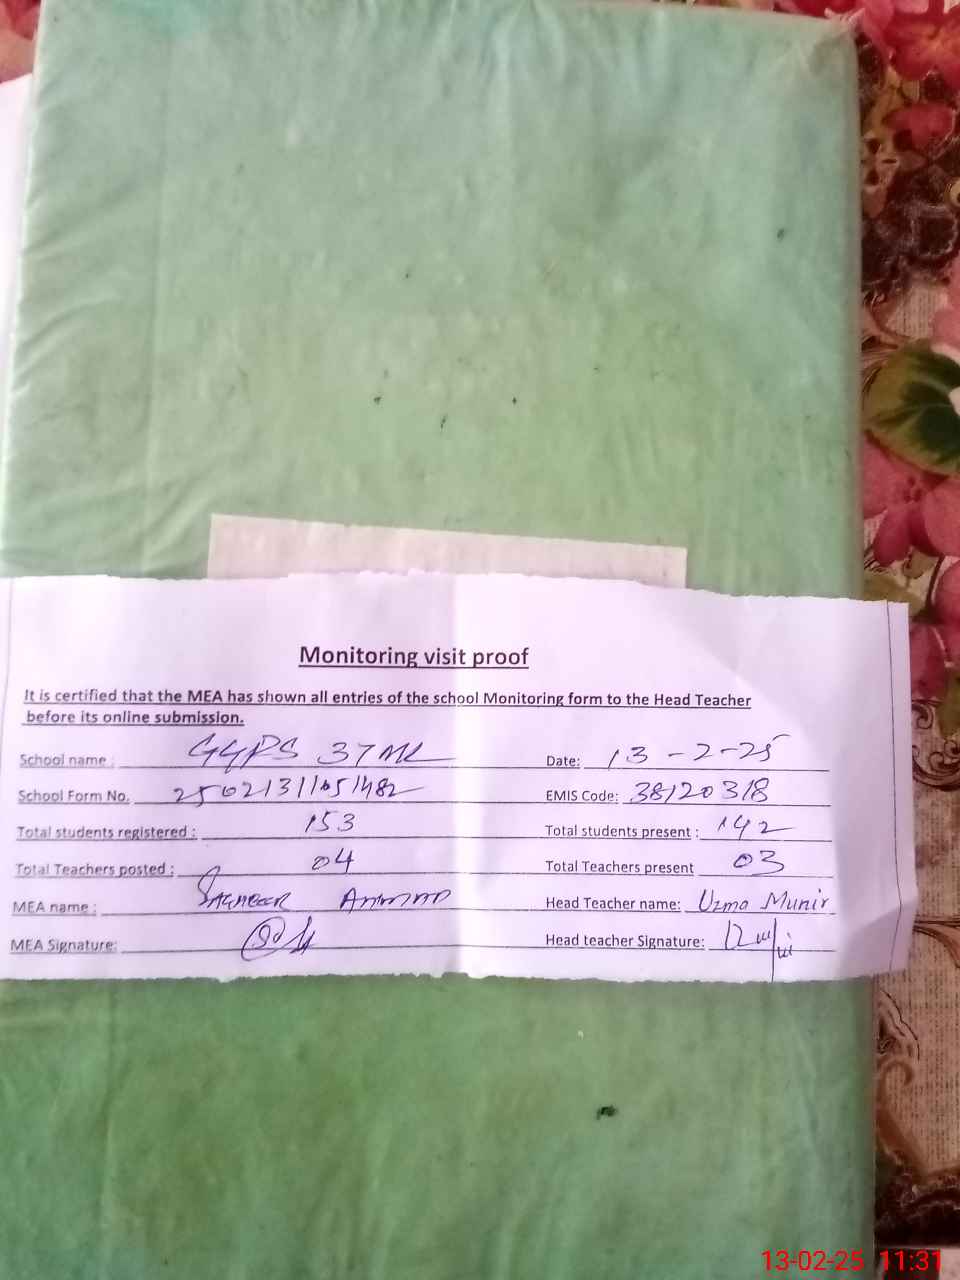 Monitoring visit proof
It is certified that the MEA has shown all entries of the school Monitoring form to the Head Teacher
before its online submission.
School name : GGPS 37ML Date: 13-2-25
School Form No. 25021311051482 EMIS Code: 38120318
Total students registered : 153 Total students present : 142
Total Teachers posted : 04 Total Teachers present 03
MEA name : SAGHEER AHMAD Head Teacher name: Uzma Munir
MEA Signature: Head teacher Signature:
13-02-25 11:31